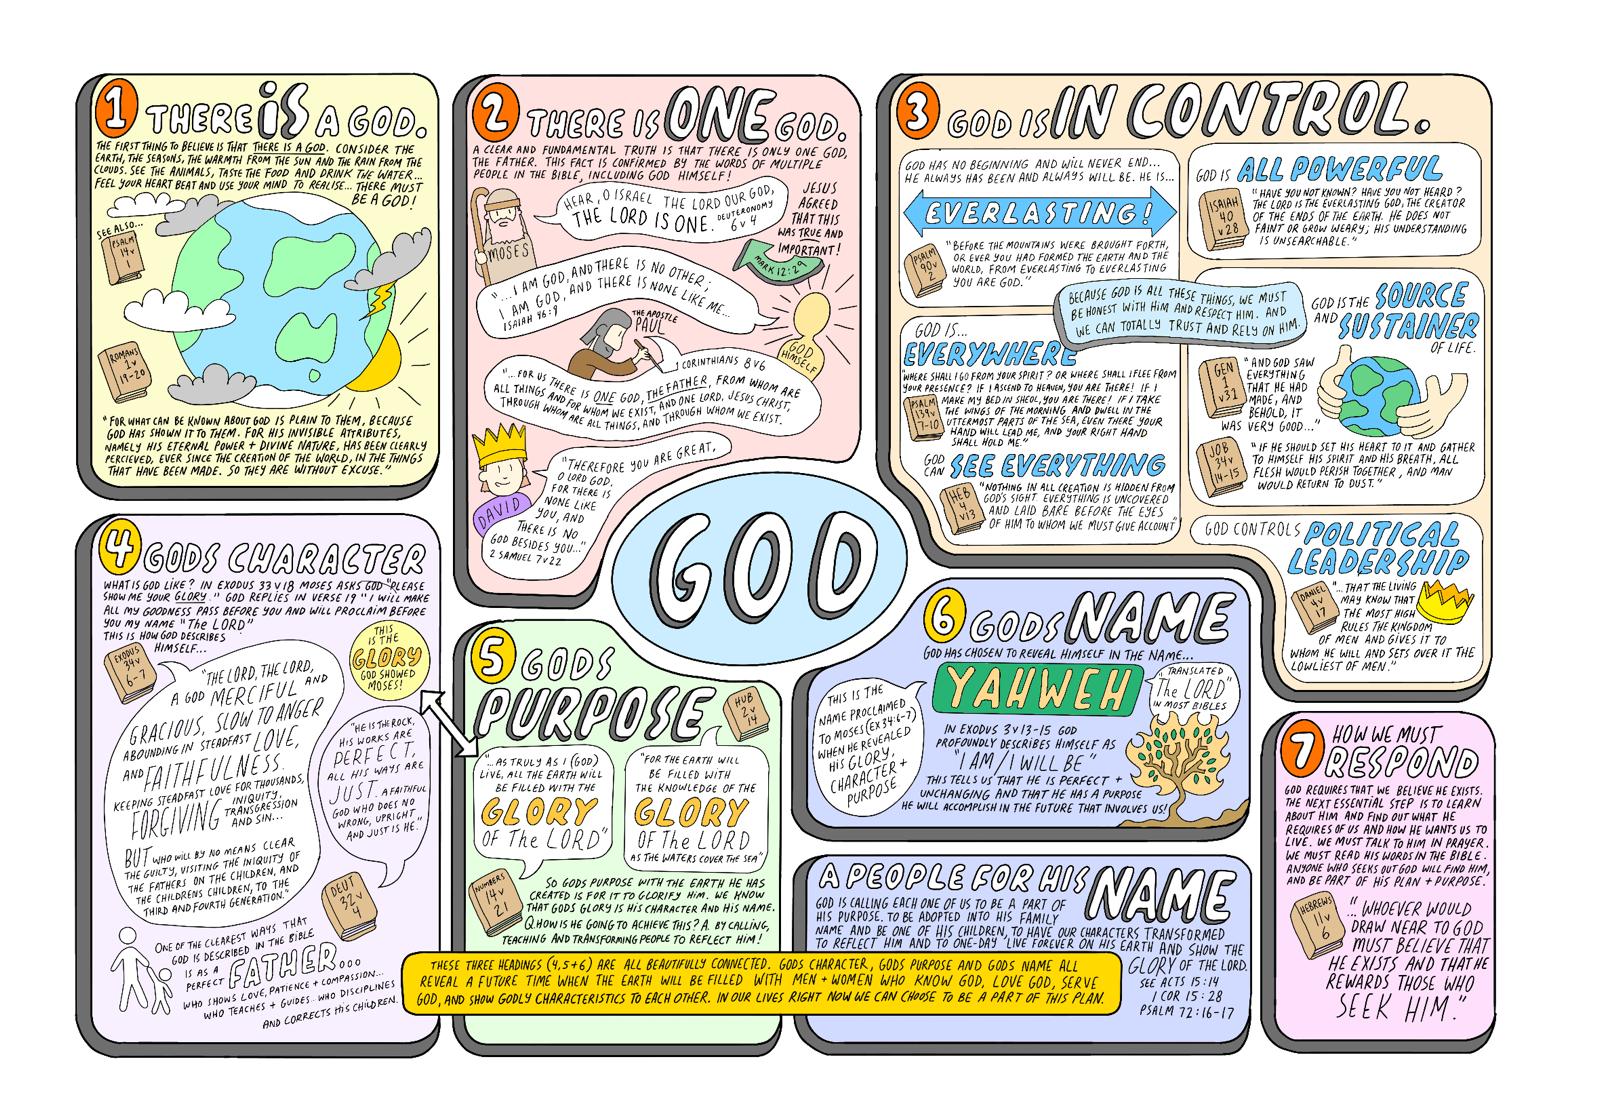 1 THERE IS A GOD.
THE FIRST THING TO BELIEVE IS THAT THERE IS A GOD. CONSIDER THE
EARTH, THE SEASONS, THE WARMTH FROM THE SUN AND THE RAIN FROM THE
CLOUDS. SEE THE ANIMALS, TASTE THE FOOD AND DRINK THE WATER...
FEEL YOUR HEART BEAT AND USE YOUR MIND TO REALISE... THERE MUST
BE A GOD!
SEE ALSO...
PSALM
14 v
1
ROMANS
1 v
19-20
"FOR WHAT CAN BE KNOWN ABOUT GOD IS PLAIN TO THEM, BECAUSE
GOD HAS SHOWN IT TO THEM. FOR HIS INVISIBLE ATTRIBUTES,
NAMELY HIS ETERNAL POWER + DIVINE NATURE, HAS BEEN CLEARLY
PERCIEVED, EVER SINCE THE CREATION OF THE WORLD, IN THE THINGS
THAT HAVE BEEN MADE. SO THEY ARE WITHOUT EXCUSE."
2 THERE IS ONE GOD.
A CLEAR AND FUNDAMENTAL TRUTH IS THAT THERE IS ONLY ONE GOD,
THE FATHER. THIS FACT IS CONFIRMED BY THE WORDS OF MULTIPLE
PEOPLE IN THE BIBLE, INCLUDING GOD HIMSELF!
MOSES
HEAR, O ISRAEL THE LORD OUR GOD,
THE LORD IS ONE. DEUTERONOMY
6 v 4
JESUS
AGREED
THAT THIS
WAS TRUE AND
IMPORTANT!
MARK 12:29
"...I AM GOD, AND THERE IS NO OTHER;
I AM GOD, AND THERE IS NONE LIKE ME...
ISAIAH 46:9
GOD
HIMSELF
THE APOSTLE
PAUL
1 CORINTHIANS 8 v 6
"...FOR US THERE IS ONE GOD, THE FATHER, FROM WHOM ARE
ALL THINGS AND FOR WHOM WE EXIST, AND ONE LORD, JESUS CHRIST,
THROUGH WHOM ARE ALL THINGS, AND THROUGH WHOM WE EXIST.
DAVID
"THEREFORE YOU ARE GREAT,
O LORD GOD.
FOR THERE IS
NONE LIKE
YOU, AND
THERE IS NO
GOD BESIDES YOU..."
2 SAMUEL 7 v 22
3 GOD IS IN CONTROL.
GOD HAS NO BEGINNING AND WILL NEVER END...
HE ALWAYS HAS BEEN AND ALWAYS WILL BE. HE IS...
EVERLASTING!
PSALM
90 v
2
"BEFORE THE MOUNTAINS WERE BROUGHT FORTH,
OR EVER YOU HAD FORMED THE EARTH AND THE
WORLD, FROM EVERLASTING TO EVERLASTING
YOU ARE GOD."
GOD IS ALL POWERFUL
ISAIAH
40
v 28
"HAVE YOU NOT KNOWN? HAVE YOU NOT HEARD?
THE LORD IS THE EVERLASTING GOD, THE CREATOR
OF THE ENDS OF THE EARTH. HE DOES NOT
FAINT OR GROW WEARY; HIS UNDERSTANDING
IS UNSEARCHABLE."
BECAUSE GOD IS ALL THESE THINGS, WE MUST
BE HONEST WITH HIM AND RESPECT HIM. AND
WE CAN TOTALLY TRUST AND RELY ON HIM.
GOD IS...
EVERYWHERE
"WHERE SHALL I GO FROM YOUR SPIRIT? OR WHERE SHALL I FLEE FROM
YOUR PRESENCE? IF I ASCEND TO HEAVEN, YOU ARE THERE! IF I
MAKE MY BED IN SHEOL, YOU ARE THERE! IF I TAKE
THE WINGS OF THE MORNING AND DWELL IN THE
UTTERMOST PARTS OF THE SEA, EVEN THERE YOUR
HAND WILL LEAD ME, AND YOUR RIGHT HAND
SHALL HOLD ME."
PSALM
139 v
7-10
GOD
CAN SEE EVERYTHING
HEB
4
v 13
"NOTHING IN ALL CREATION IS HIDDEN FROM
GOD'S SIGHT. EVERYTHING IS UNCOVERED
AND LAID BARE BEFORE THE EYES
OF HIM TO WHOM WE MUST GIVE ACCOUNT"
GOD IS THE SOURCE
AND SUSTAINER
OF LIFE.
GEN
1
v 31
"AND GOD SAW
EVERYTHING
THAT HE HAD
MADE, AND
BEHOLD, IT
WAS VERY GOOD..."
JOB
34 v
14-15
"IF HE SHOULD SET HIS HEART TO IT AND GATHER
TO HIMSELF HIS SPIRIT AND HIS BREATH, ALL
FLESH WOULD PERISH TOGETHER, AND MAN
WOULD RETURN TO DUST."
GOD CONTROLS POLITICAL
LEADERSHIP
DANIEL
4 v
17
"...THAT THE LIVING
MAY KNOW THAT
THE MOST HIGH
RULES THE KINGDOM
OF MEN AND GIVES IT TO
WHOM HE WILL AND SETS OVER IT THE
LOWLIEST OF MEN."
GOD
4 GODS CHARACTER
WHAT IS GOD LIKE? IN EXODUS 33 v 18 MOSES ASKS GOD "PLEASE
SHOW ME YOUR GLORY." GOD REPLIES IN VERSE 19 "I WILL MAKE
ALL MY GOODNESS PASS BEFORE YOU AND WILL PROCLAIM BEFORE
YOU MY NAME "The LORD"
THIS IS HOW GOD DESCRIBES
HIMSELF...
EXODUS
34 v
6-7
THIS
IS THE
GLORY
GOD SHOWED
MOSES!
"THE LORD, THE LORD,
A GOD MERCIFUL AND
GRACIOUS, SLOW TO ANGER
ABOUNDING IN STEADFAST LOVE,
AND FAITHFULNESS.
KEEPING STEADFAST LOVE FOR THOUSANDS,
FORGIVING INIQUITY,
TRANSGRESSION
AND SIN...
BUT WHO WILL BY NO MEANS CLEAR
THE GUILTY, VISITING THE INIQUITY OF
THE FATHERS ON THE CHILDREN, AND
THE CHILDRENS CHILDREN, TO THE
THIRD AND FOURTH GENERATION."
"HE IS THE ROCK,
HIS WORKS ARE
PERFECT,
ALL HIS WAYS ARE
JUST. A FAITHFUL
GOD WHO DOES NO
WRONG, UPRIGHT
AND JUST IS HE."
DEUT
32 v
4
ONE OF THE CLEAREST WAYS THAT
GOD IS DESCRIBED IN THE BIBLE
IS AS A
PERFECT FATHER...
WHO SHOWS LOVE, PATIENCE + COMPASSION...
WHO TEACHES + GUIDES. WHO DISCIPLINES
AND CORRECTS HIS CHILDREN.
5 GODS
PURPOSE
HUB
2 v
14
"...AS TRULY AS I (GOD)
LIVE, ALL THE EARTH WILL
BE FILLED WITH THE
GLORY
OF The LORD"
"FOR THE EARTH WILL
BE FILLED WITH
THE KNOWLEDGE OF THE
GLORY
OF The LORD
AS THE WATERS COVER THE SEA"
NUMBERS
14 v
21
SO GODS PURPOSE WITH THE EARTH HE HAS
CREATED IS FOR IT TO GLORIFY HIM. WE KNOW
THAT GODS GLORY IS HIS CHARACTER AND HIS NAME.
Q. HOW IS HE GOING TO ACHIEVE THIS? A. BY CALLING,
TEACHING AND TRANSFORMING PEOPLE TO REFLECT HIM!
THESE THREE HEADINGS (4,5+6) ARE ALL BEAUTIFULLY CONNECTED. GODS CHARACTER, GODS PURPOSE AND GODS NAME ALL
REVEAL A FUTURE TIME WHEN THE EARTH WILL BE FILLED WITH MEN + WOMEN WHO KNOW GOD, LOVE GOD, SERVE
GOD, AND SHOW GODLY CHARACTERISTICS TO EACH OTHER. IN OUR LIVES RIGHT NOW WE CAN CHOOSE TO BE A PART OF THIS PLAN.
6 GODS NAME
GOD HAS CHOSEN TO REVEAL HIMSELF IN THE NAME...
YAHWEH
TRANSLATED
"The LORD"
IN MOST BIBLES
THIS IS THE
NAME PROCLAIMED
TO MOSES (EX 34:6-7)
WHEN HE REVEALED
HIS GLORY,
CHARACTER +
PURPOSE
IN EXODUS 3 v 13-15 GOD
PROFOUNDLY DESCRIBES HIMSELF AS
"I AM / I WILL BE"
THIS TELLS US THAT HE IS PERFECT +
UNCHANGING AND THAT HE HAS A PURPOSE
HE WILL ACCOMPLISH IN THE FUTURE THAT INVOLVES US!
A PEOPLE FOR HIS NAME
GOD IS CALLING EACH ONE OF US TO BE A PART OF
HIS PURPOSE. TO BE ADOPTED INTO HIS FAMILY
NAME AND BE ONE OF HIS CHILDREN, TO HAVE OUR CHARACTERS TRANSFORMED
TO REFLECT HIM AND TO ONE-DAY LIVE FOREVER ON HIS EARTH AND SHOW THE
GLORY OF THE LORD.
SEE ACTS 15:14
1 COR 15:28
PSALM 72:16-17
7 HOW WE MUST
RESPOND
GOD REQUIRES THAT WE BELIEVE HE EXISTS.
THE NEXT ESSENTIAL STEP IS TO LEARN
ABOUT HIM AND FIND OUT WHAT HE
REQUIRES OF US AND HOW HE WANTS US TO
LIVE. WE MUST TALK TO HIM IN PRAYER.
WE MUST READ HIS WORDS IN THE BIBLE.
ANYONE WHO SEEKS OUT GOD WILL FIND HIM,
AND BE PART OF HIS PLAN + PURPOSE.
HEBREWS
11 v
6
"...WHOEVER WOULD
DRAW NEAR TO GOD
MUST BELIEVE THAT
HE EXISTS AND THAT HE
REWARDS THOSE WHO
SEEK HIM."